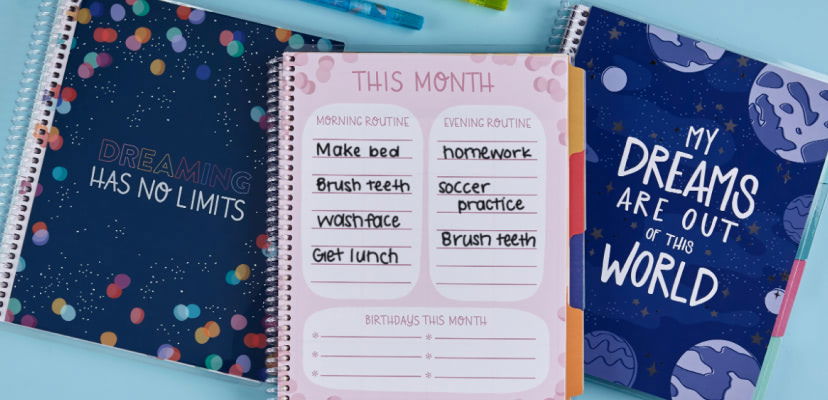 DREAMING
HAS NO LIMITS
THIS MONTH
MORNING ROUTINE
Make bed
Brush teeth
wash face
Get lunch
EVENING ROUTINE
homework
soccer
practice
Brush teeth
BIRTHDAYS THIS MONTH
MY
DREAMS
ARE OUT
OF THIS
WORLD